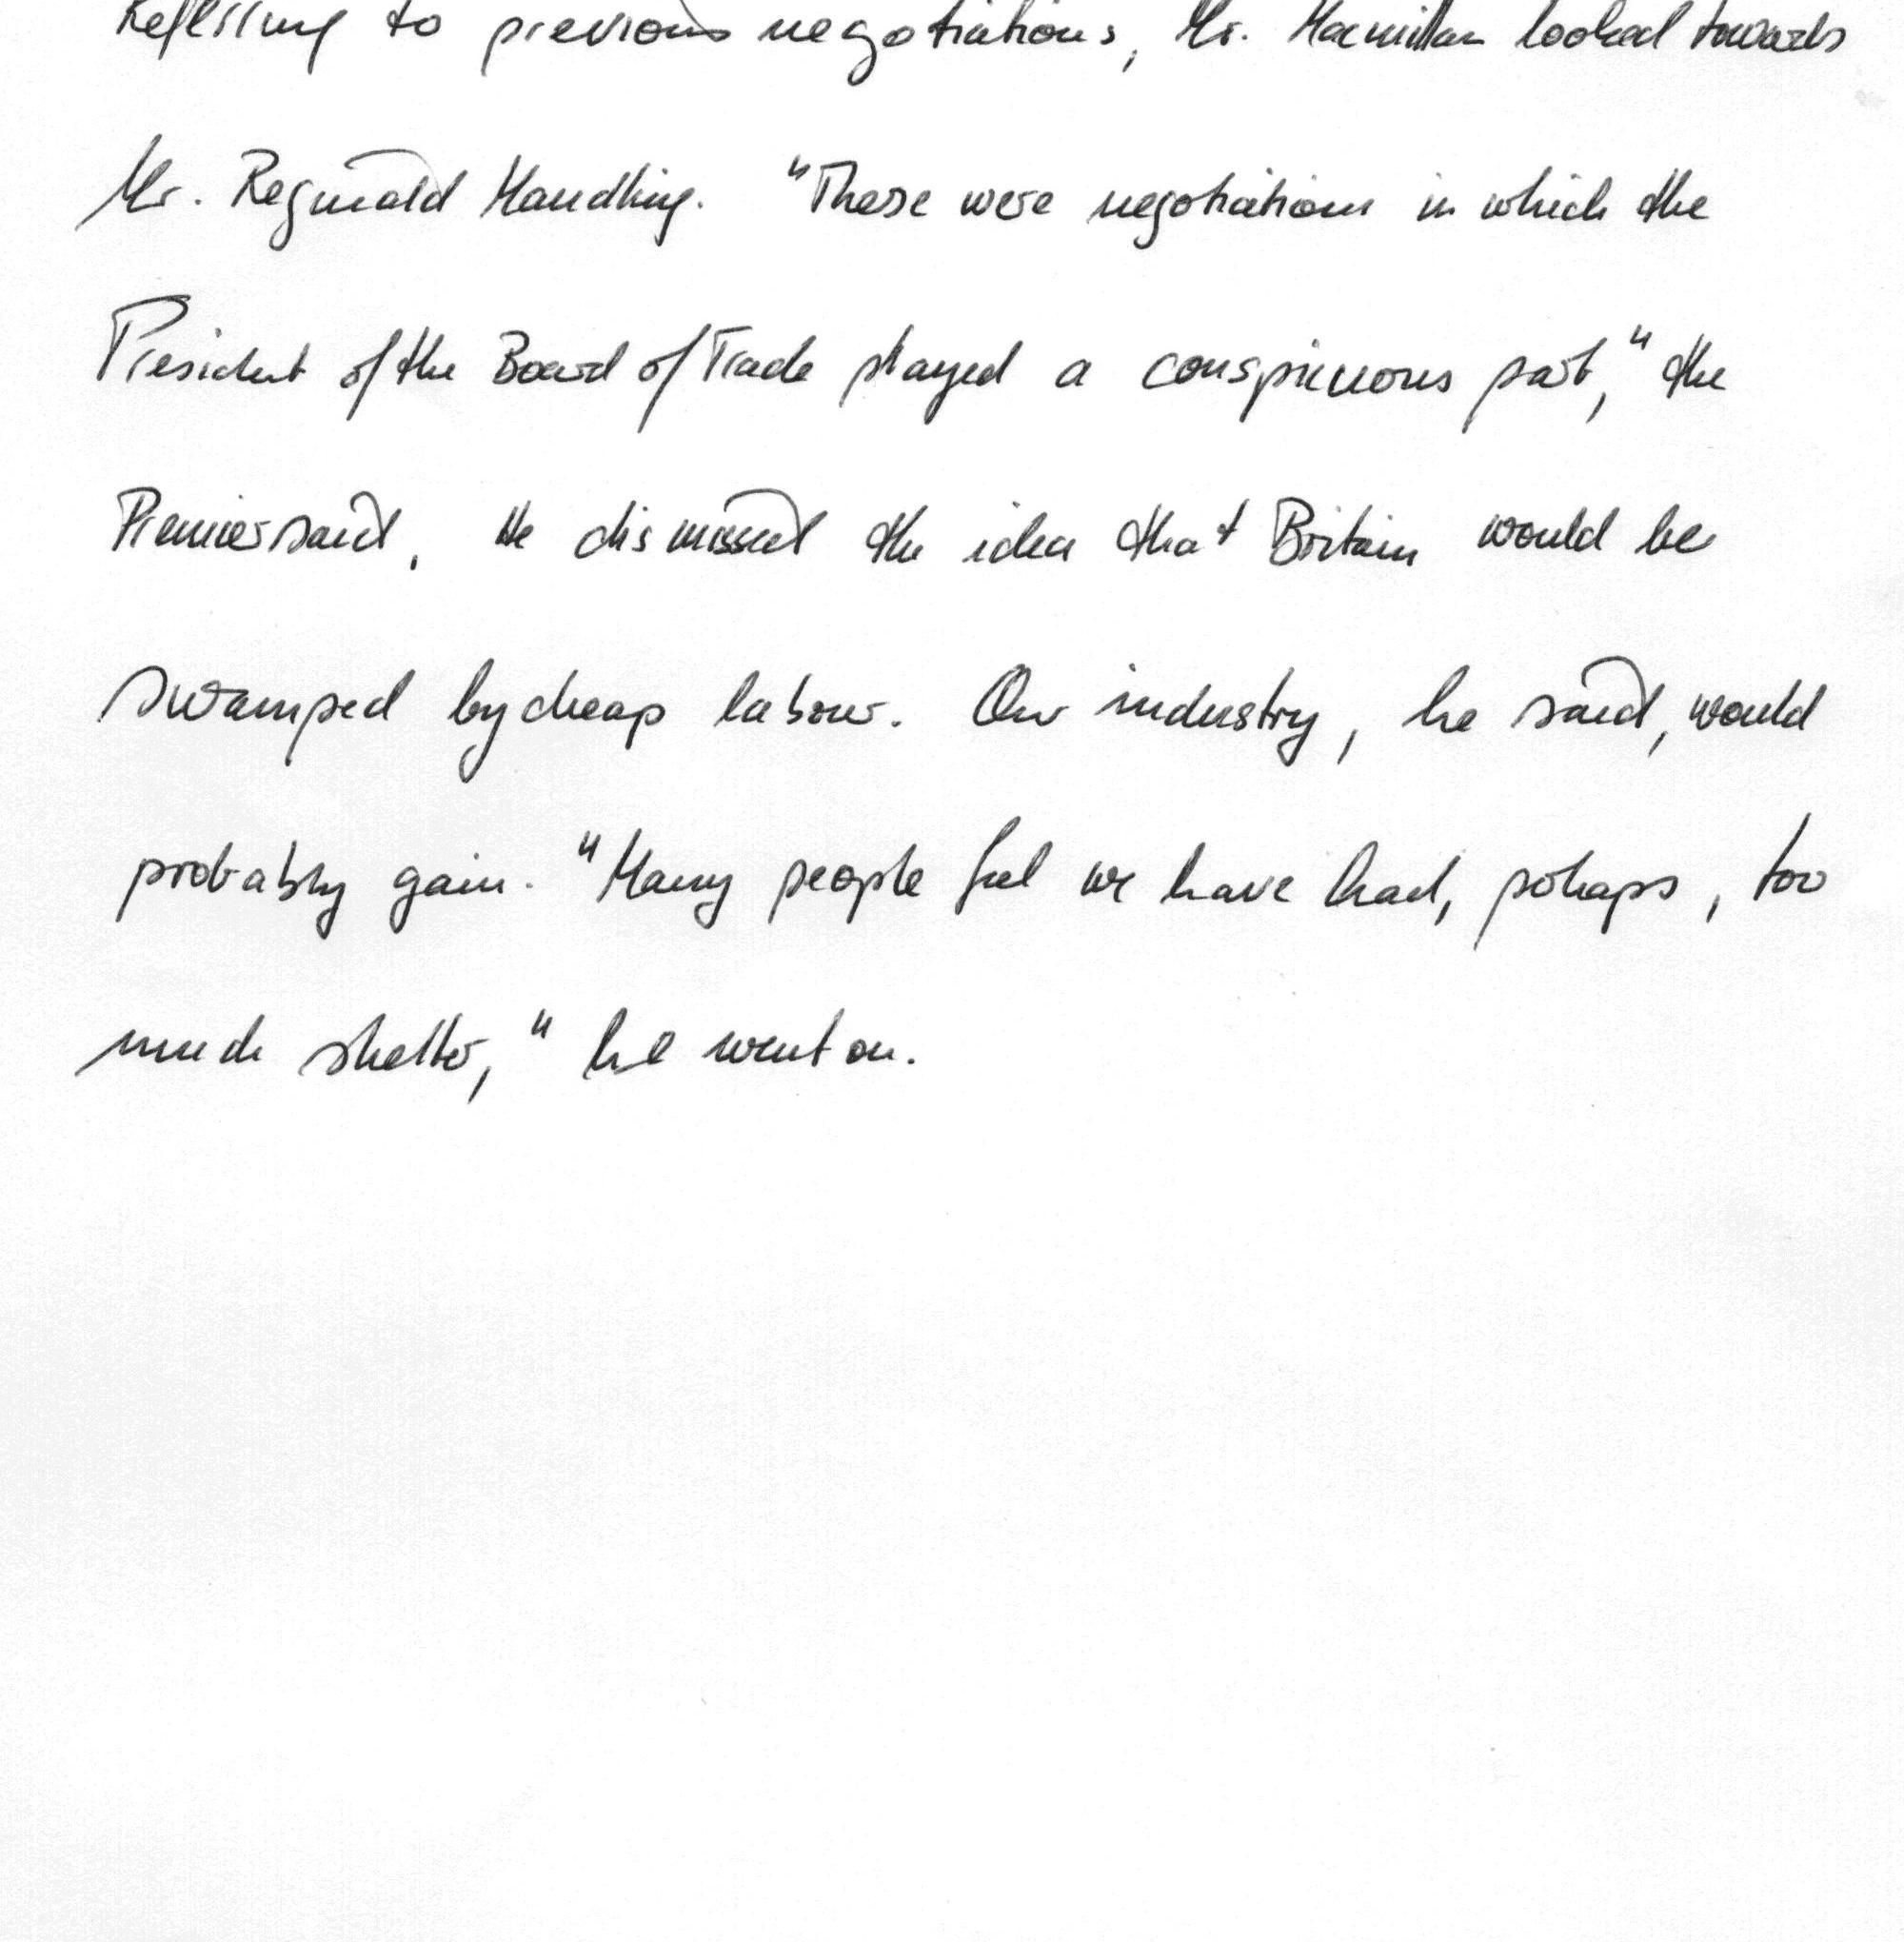 Referring to previous negotiations, Mr. Macmillan looked towards
Mr. Reginald Maudling. "These were negotiations in which the
President of the Board of Trade played a conspicuous part," the
Premier said. He dismissed the idea that Britain would be
swamped by cheap labour. Our industry, he said, would
probably gain. "Many people feel we have had, perhaps, too
much shelter," he went on.